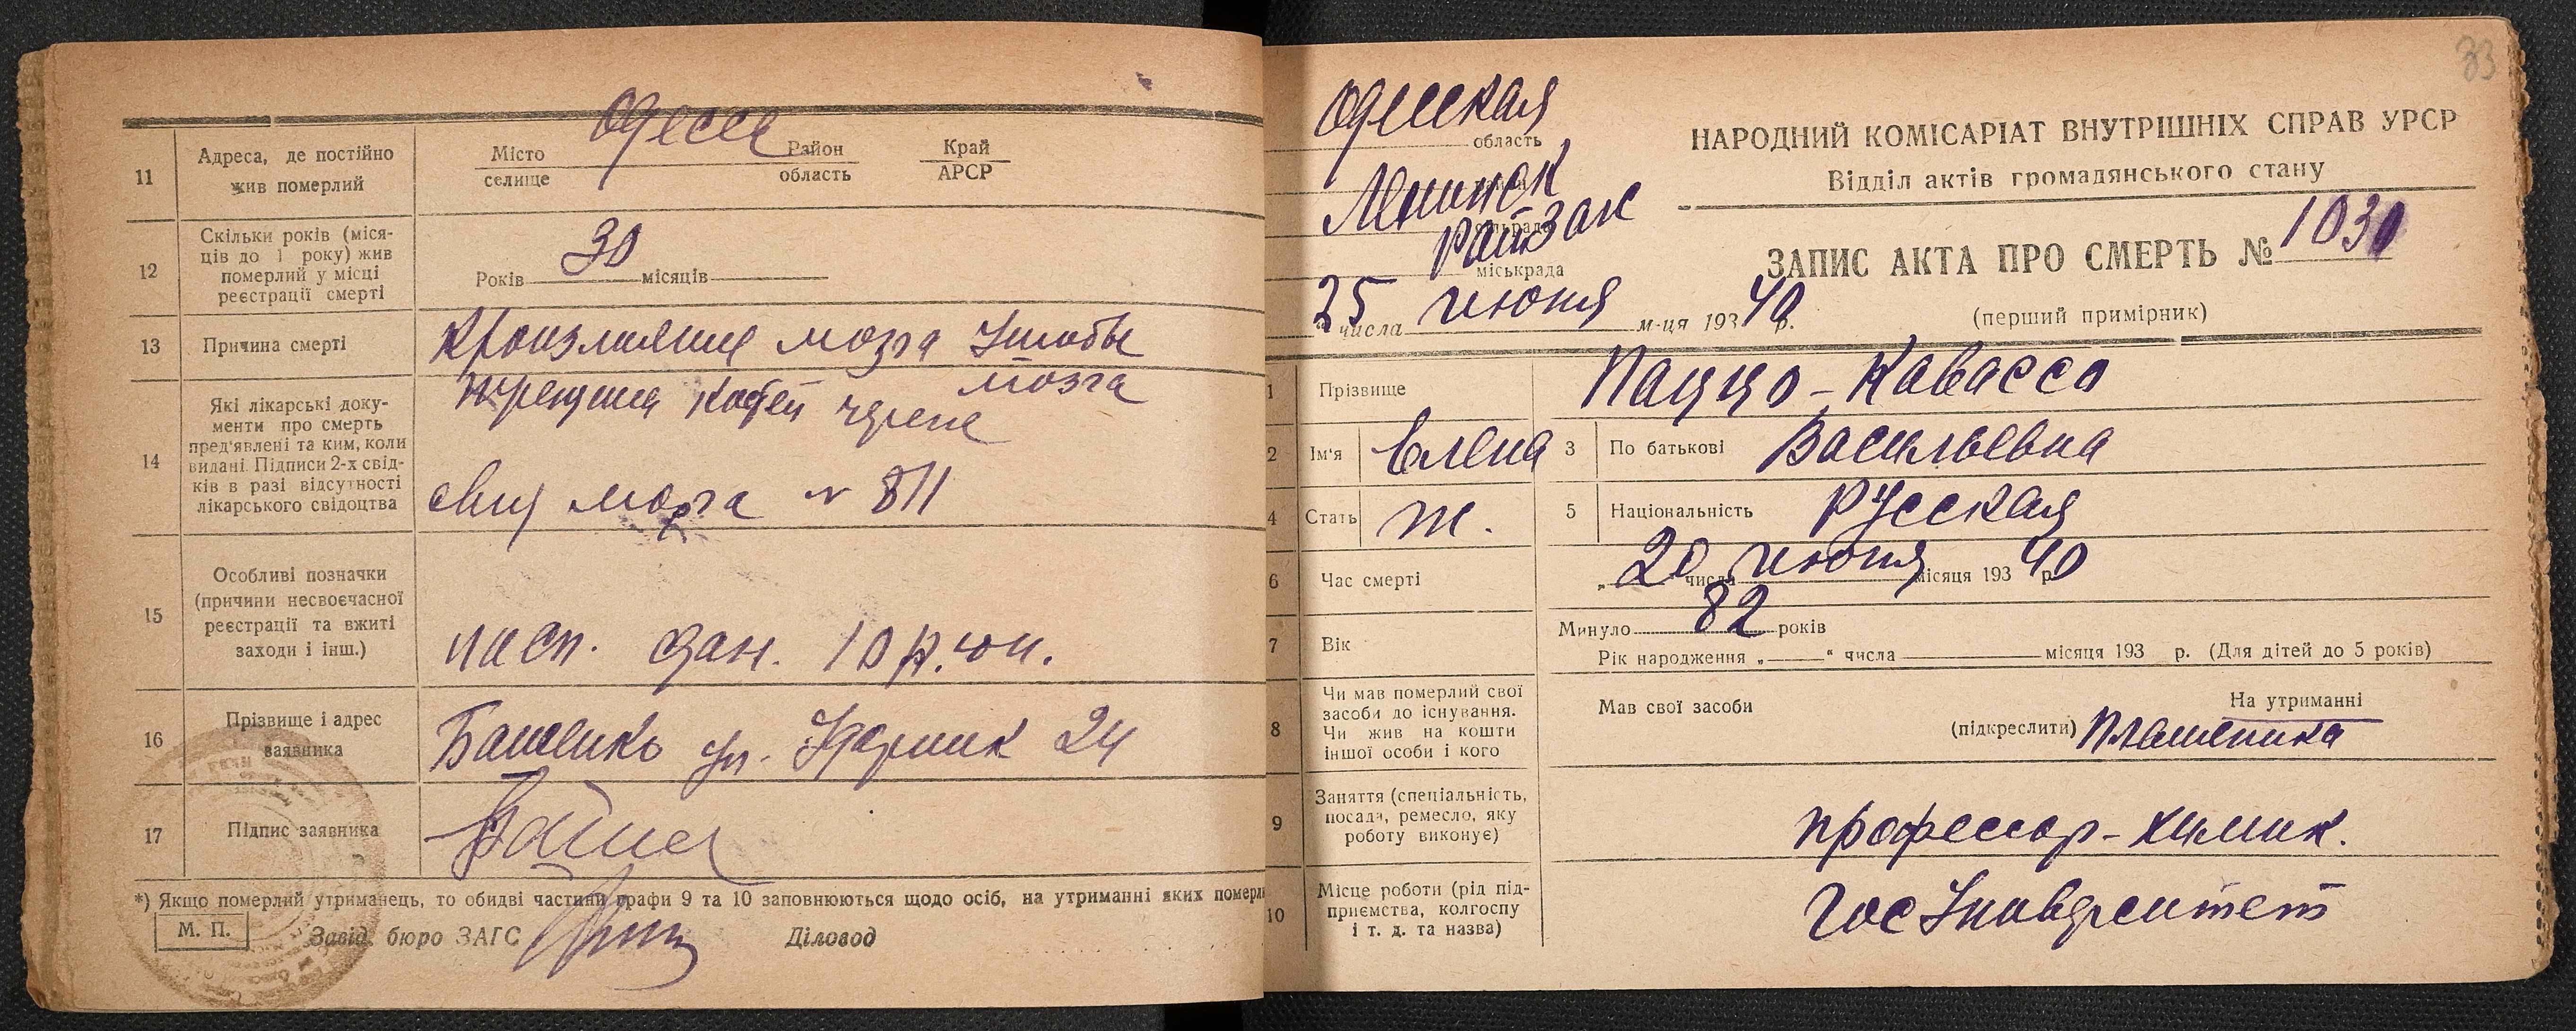 11
Адреса, де постійно
жив померлий
Одесса
Місто
селище
Район
область
Край
АРСР
12
Скільки років (міся-
ців до 1 року) жив
померлий у місці
реєстрації смерті
Років 30 місяців
13
Причина смерті
Кровзлияние мозга Ушибы
мозга
трещина костей черепа
14
Які лікарські доку-
менти про смерть
пред'явлені та ким, коли
видані. Підписи 2-х свід-
ків в разі відсутності
лікарського свідоцтва
морга № 811
15
Особливі позначки
(причини несвоєчасної
реєстрації та вжиті
заходи і інш.)
пасп. дан. 10
16
Прізвище і адрес
заявника
ул. 24
17
Підпис заявника
*) Якщо померлий утриманець, то обидві частини графи 9 та 10 заповнюються щодо осіб, на утриманні яких
М. П.
Завід. бюро ЗАГС
Діловод
33
Одесская
область
Ленинск
райЗагс
міськрада
25 числа июня м-ця 193 40 р.
НАРОДНИЙ КОМІСАРІАТ ВНУТРІШНІХ СПРАВ УРСР
Відділ актів громадянського стану
ЗАПИС АКТА ПРО СМЕРТЬ № 1031
(перший примірник)
1
Прізвище
Паццо-Кавассо
2
Ім'я
Елена
3
По батькові
Васильевна
4
Стать
ж.
5
Національність
Русская
6
Час смерті
„ 20 числа июня місяця 193 40 р.
7
Вік
Минуло 82 років
Рік народження „ “ числа місяця 193 р. (Для дітей до 5 років)
8
Чи мав померлий свої
засоби до існування.
Чи жив на кошти
іншої особи і кого
Мав свої засоби
На утриманні
(підкреслити) племеника
9
Заняття (спеціальність,
посада, ремесло, яку
роботу виконує)
профессор-химик.
10
Місце роботи (рід під-
приємства, колгоспу
і т. д. та назва)
Гос Университет